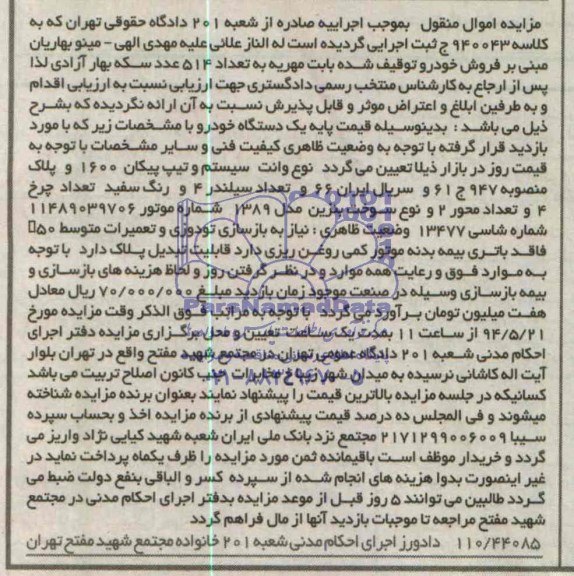 مزایده اموال منقول   بموجب اجراییه صادره از شعبه ۲۰۱ دادگاه حقوقی تهران که به
کلاسه ۹۴۰۰۴۳ ج ثبت اجرایی گردیده است له الناز علائی علیه مهدی الهی - مینو بهاریان
مبنی بر فروش خودرو توقیف شده بابت مهریه به تعداد ۵۱۴ عدد سکه بهار آزادی لذا
پس از ارجاع به کارشناس منتخب رسمی دادگستری جهت ارزیابی نسبت به ارزیابی اقدام
و به طرفین ابلاغ و اعتراض موثر و قابل پذیرش نسبت به آن ارائه نگردیده که بشرح
ذیل می باشد : بدینوسیله قیمت پایه یک دستگاه خودرو با مشخصات زیر که با مورد
بازدید قرار گرفته با توجه به وضعیت ظاهری کیفیت فنی و سایر مشخصات با توجه به
قیمت روز در بازار ذیلا تعیین می گردد  نوع وانت  سیستم و تیپ پیکان ۱۶۰۰ و پلاک
منصوبه ۹۴۷ ج ۶۱ و سریال ایران ۶۶ و تعداد سیلندر ۴ و رنگ سفید تعداد چرخ
۴ و تعداد محور ۲ و نوع سوخت بنزین مدل ۱۳۸۹ شماره موتور ۱۱۴۸۹۰۳۹۷۰۶
شماره شاسی ۱۳۴۷۷ وضعیت ظاهری : نیاز به بازسازی تودوزی و تعمیرات متوسط ۵۰
فاقد باتری بیمه بدنه موتور کمی روغن ریزی دارد قابلیت تبدیل پلاک دارد با توجه
به موارد فوق و رعایت همه موارد و در نظر گرفتن روز و لحاظ هزینه های بازسازی و
بیمه بازسازی وسیله در صنعت موجود زمان بازدید مبلغ ۷۰/۰۰۰/۰۰۰ ریال معادل
هفت میلیون تومان برآورد می گردد با توجه به مراتب فوق الذکر وقت مزایده مورخ
۹۴/۵/۲۱ از ساعت ۱۱ بمدت یک ساعت تعیین و محل برگزاری مزایده دفتر اجرای
احکام مدنی شعبه ۲۰۱ دادگاه عمومی تهران در مجتمع شهید مفتح واقع در تهران بلوار
آیت اله کاشانی نرسیده به میدان شهر زیبا خ مخابرات جنب کانون اصلاح تربیت می باشد
کسانیکه در جلسه مزایده بالاترین قیمت را پیشنهاد نمایند بعنوان برنده مزایده شناخته
میشوند و فی المجلس ده درصد قیمت پیشنهادی از برنده مزایده اخذ و بحساب سپرده
سیبا ۲۱۷۱۲۹۹۰۰۶۰۰۹ مجتمع نزد بانک ملی ایران شعبه شهید کیایی نژاد واریز می
گردد و خریدار موظف است باقیمانده ثمن مورد مزایده را ظرف یکماه پرداخت نماید در
غیر اینصورت بدوا هزینه های انجام شده از سپرده کسر و الباقی بنفع دولت ضبط می
گردد طالبین می توانند ۵ روز قبل از موعد مزایده بدفتر اجرای احکام مدنی در مجتمع
شهید مفتح مراجعه تا موجبات بازدید آنها از مال فراهم گردد
۱۱۰/۴۴۰۸۵   دادورز اجرای احکام مدنی شعبه ۲۰۱ خانواده مجتمع شهید مفتح تهران
ParsNamadData
۰۲۱-۸۸۳۴۹۶۷۰-۵